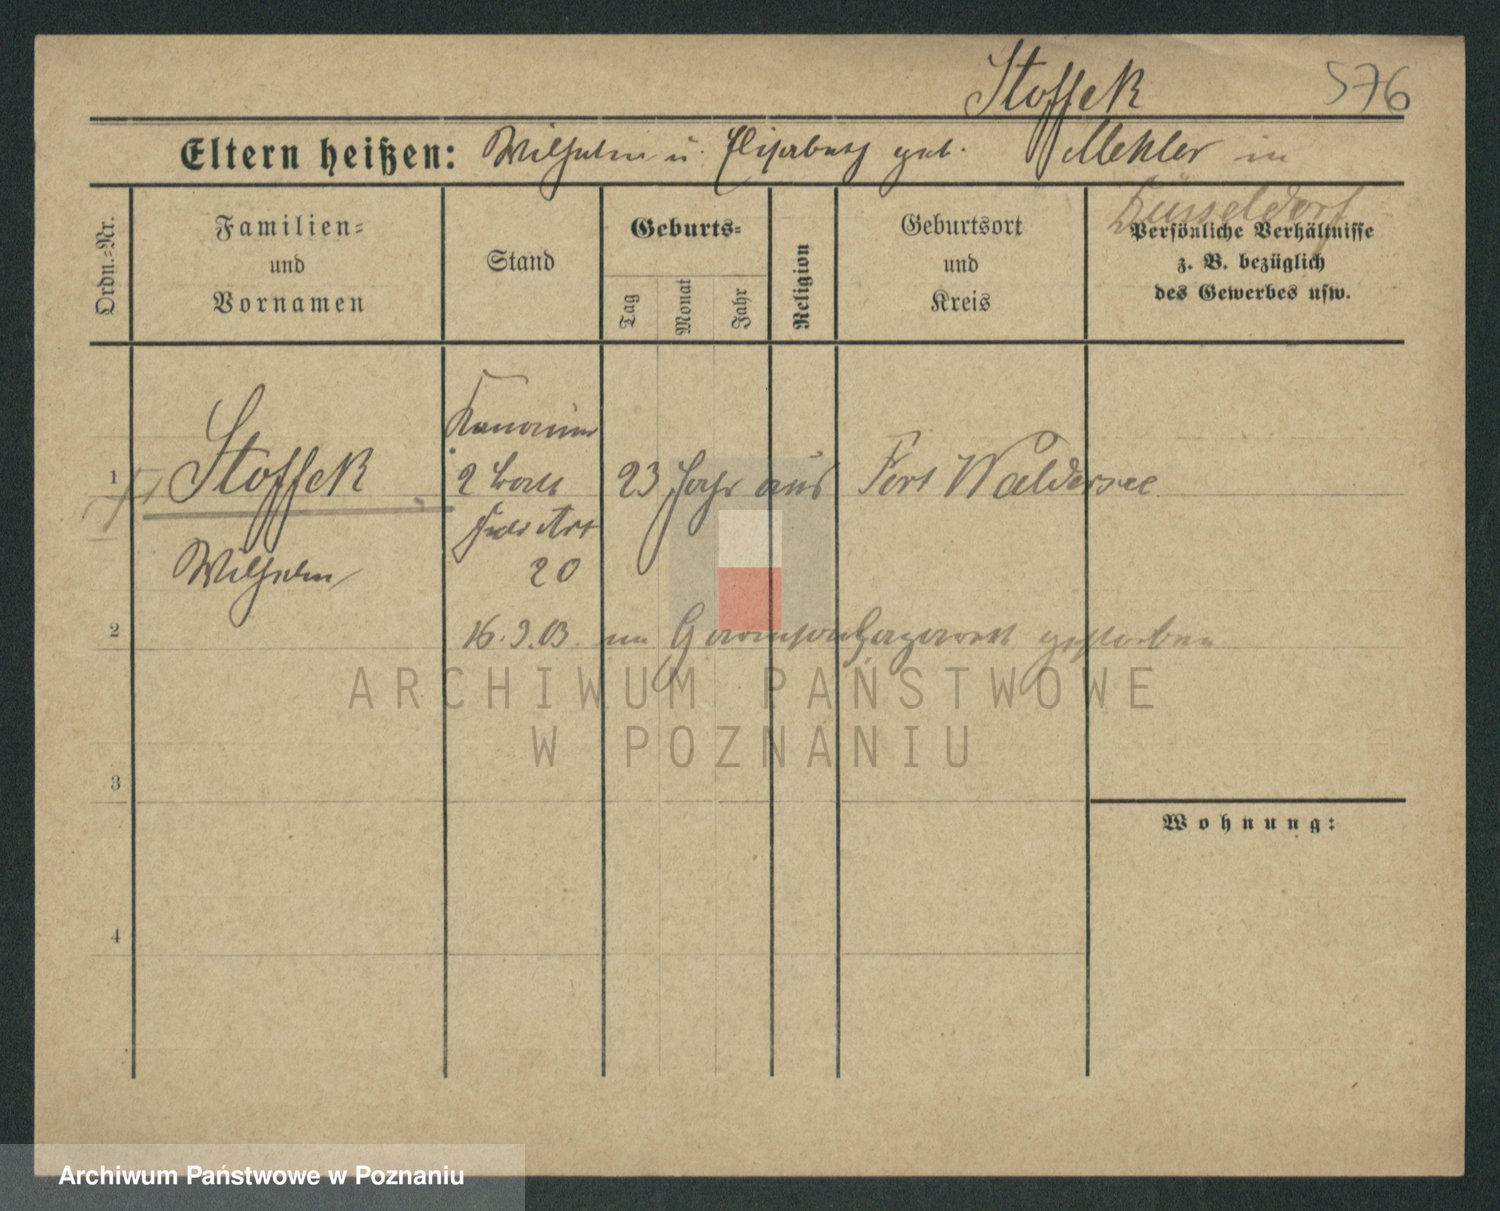 Stoffek 576
Eltern heißen: Wilhelm u. Elisabeth geb. Mekler in
Düsseldorf
Ordn.-Nr.
Familien-
und
Vornamen
Stand
Geburts-
Tag
Monat
Jahr
Religion
Geburtsort
und
Kreis
Persönliche Verhältnisse
z. B. bezüglich
des Gewerbes usw.
Kanonier
1 Stoffek 2 Batt 23 Jahr aus Fort Waldersee
Art
Wilhelm 20
2 16.9.03. im Garnisonlazareth gestorben
ARCHIWUM PAŃSTWOWE
W POZNANIU
3
Wohnung:
4
Archiwum Państwowe w Poznaniu